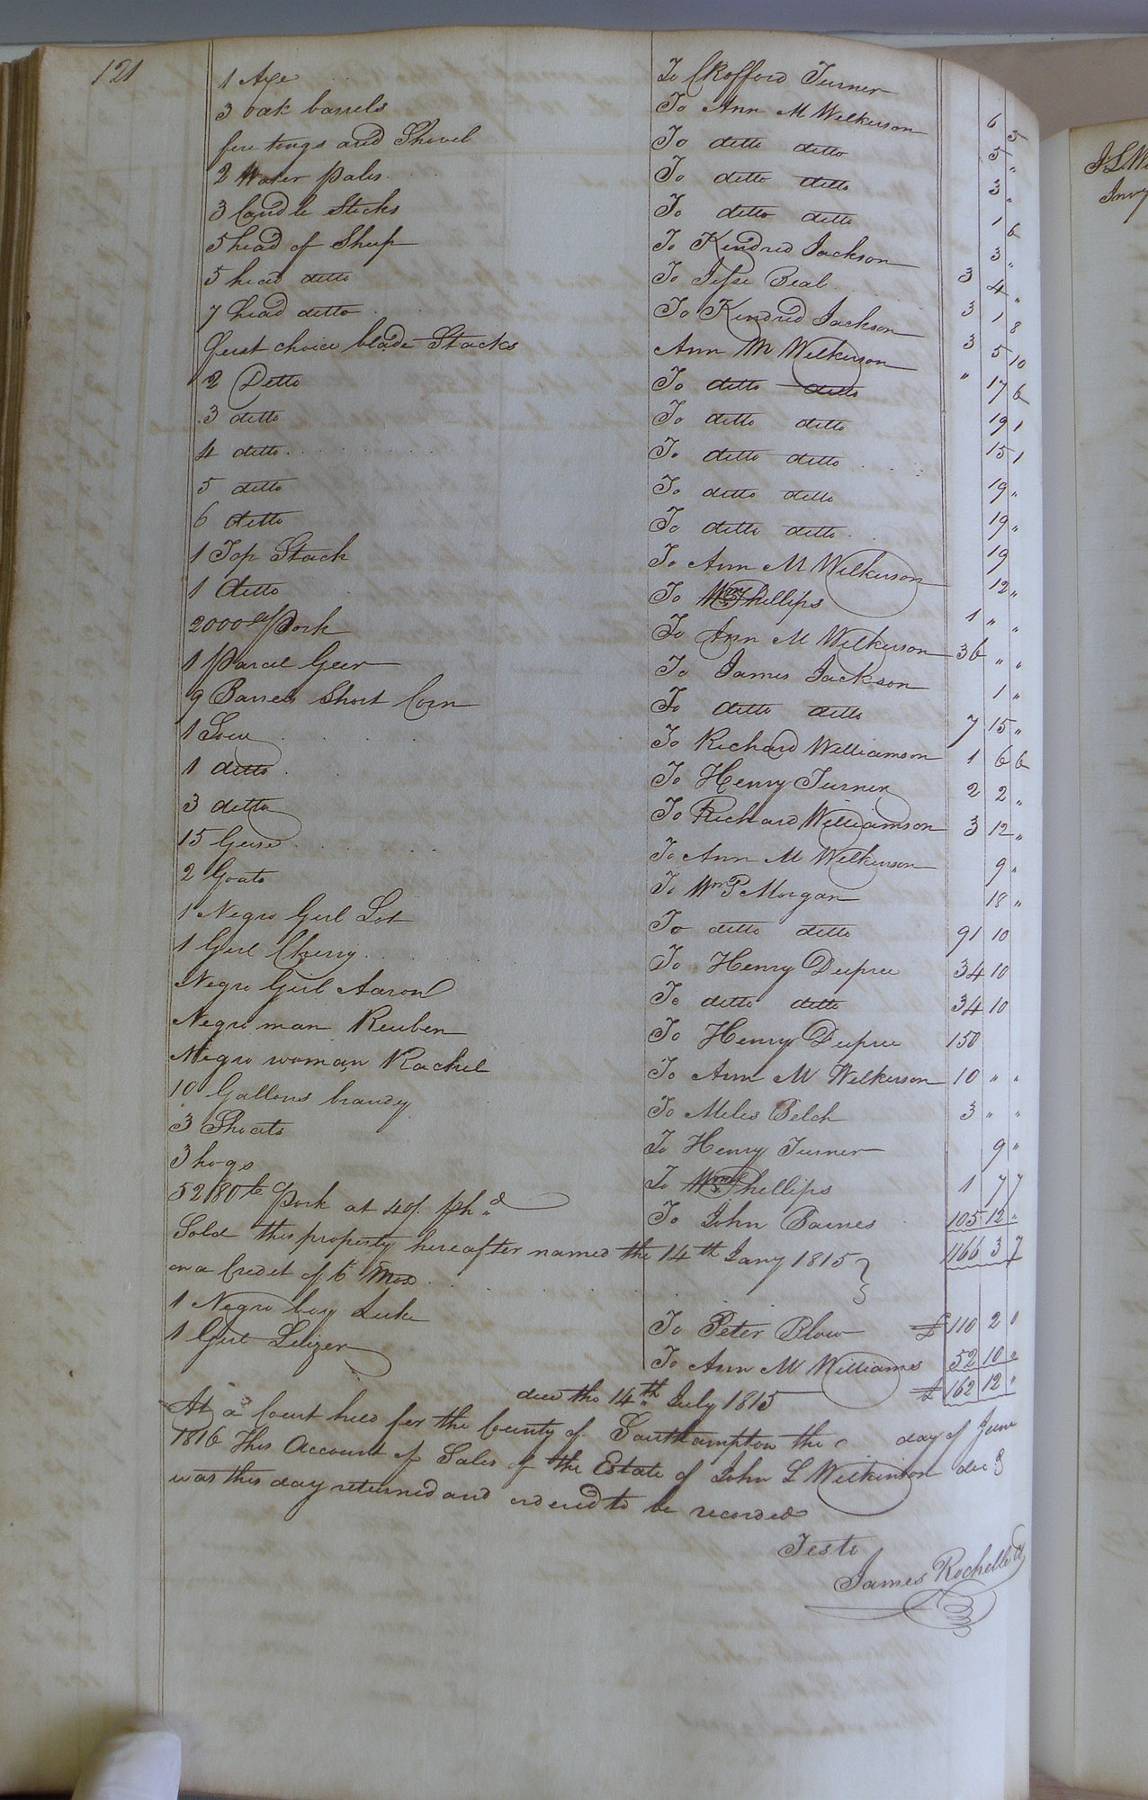 121
1 Axe To Crofford Turner 6 5
3 oak barrels To Ann M Wilkerson 5 "
fire tongs and Shovel To ditto ditto 3 "
2 Water pales To ditto ditto 1 6
3 Candle Sticks To ditto ditto 3 "
5 head of Sheep To Kindred Jackson 3 4 "
5 head ditto To Jesse Beal 3 1 8
7 head ditto To Kindred Jackson 3 5 10
first choice blade Stacks Ann M Wilkerson " 17 6
2 Ditto To ditto ditto 19 1
3 ditto To ditto ditto 15 1
4 ditto To ditto ditto 19 "
5 ditto To ditto ditto 19 "
6 ditto To ditto ditto 19
1 Top Stack To Ann M Wilkerson 12 "
1 ditto To Wm Phillips 1 " "
2000 Pork To Ann M Wilkerson 36 " "
1 parcel Geer To James Jackson 1 "
9 Barrels Short Corn To ditto ditto 7 15 "
1 Sow To Richard Williamson 1 6 6
1 ditto To Henry Turner 2 2 "
3 ditto To Richard Williamson 3 12 "
15 Geese To Ann M Wilkerson 9 "
2 Goats To Wm P Morgan 18 "
1 Negro Girl Lot To ditto ditto 91 10
1 Girl Cherry To Henry Dupree 34 10
Negro Girl Aaron To ditto ditto 34 10
Negro man Reuben To Henry Dupree 150
Negro woman Rachel To Ann M Wilkerson 10 " "
10 Gallons brandy To Miles Belch 3 " "
3 Shoats To Henry Turner 9 "
3 hogs To Wm Phillips 1 7 7
52180 lb Pork at 40/ ph.d To John Barnes 105 12 "
Sold this property hereafter named the 14th Jany 1815 1166 3 7
on a Credit of 6 Mos
1 Negro boy Luke To Peter Blow £110 2 0
1 Girl Lilizer To Ann M Williams 52 10 0
due the 14th July 1815 £162 12 "
At a Court held for the County of Southampton the day of June
1816 This Account of Sales of the Estate of John L Wilkinson decd
was this day returned and ordered to be recorded
Teste
James Rochelle Cl
J L W
Inv